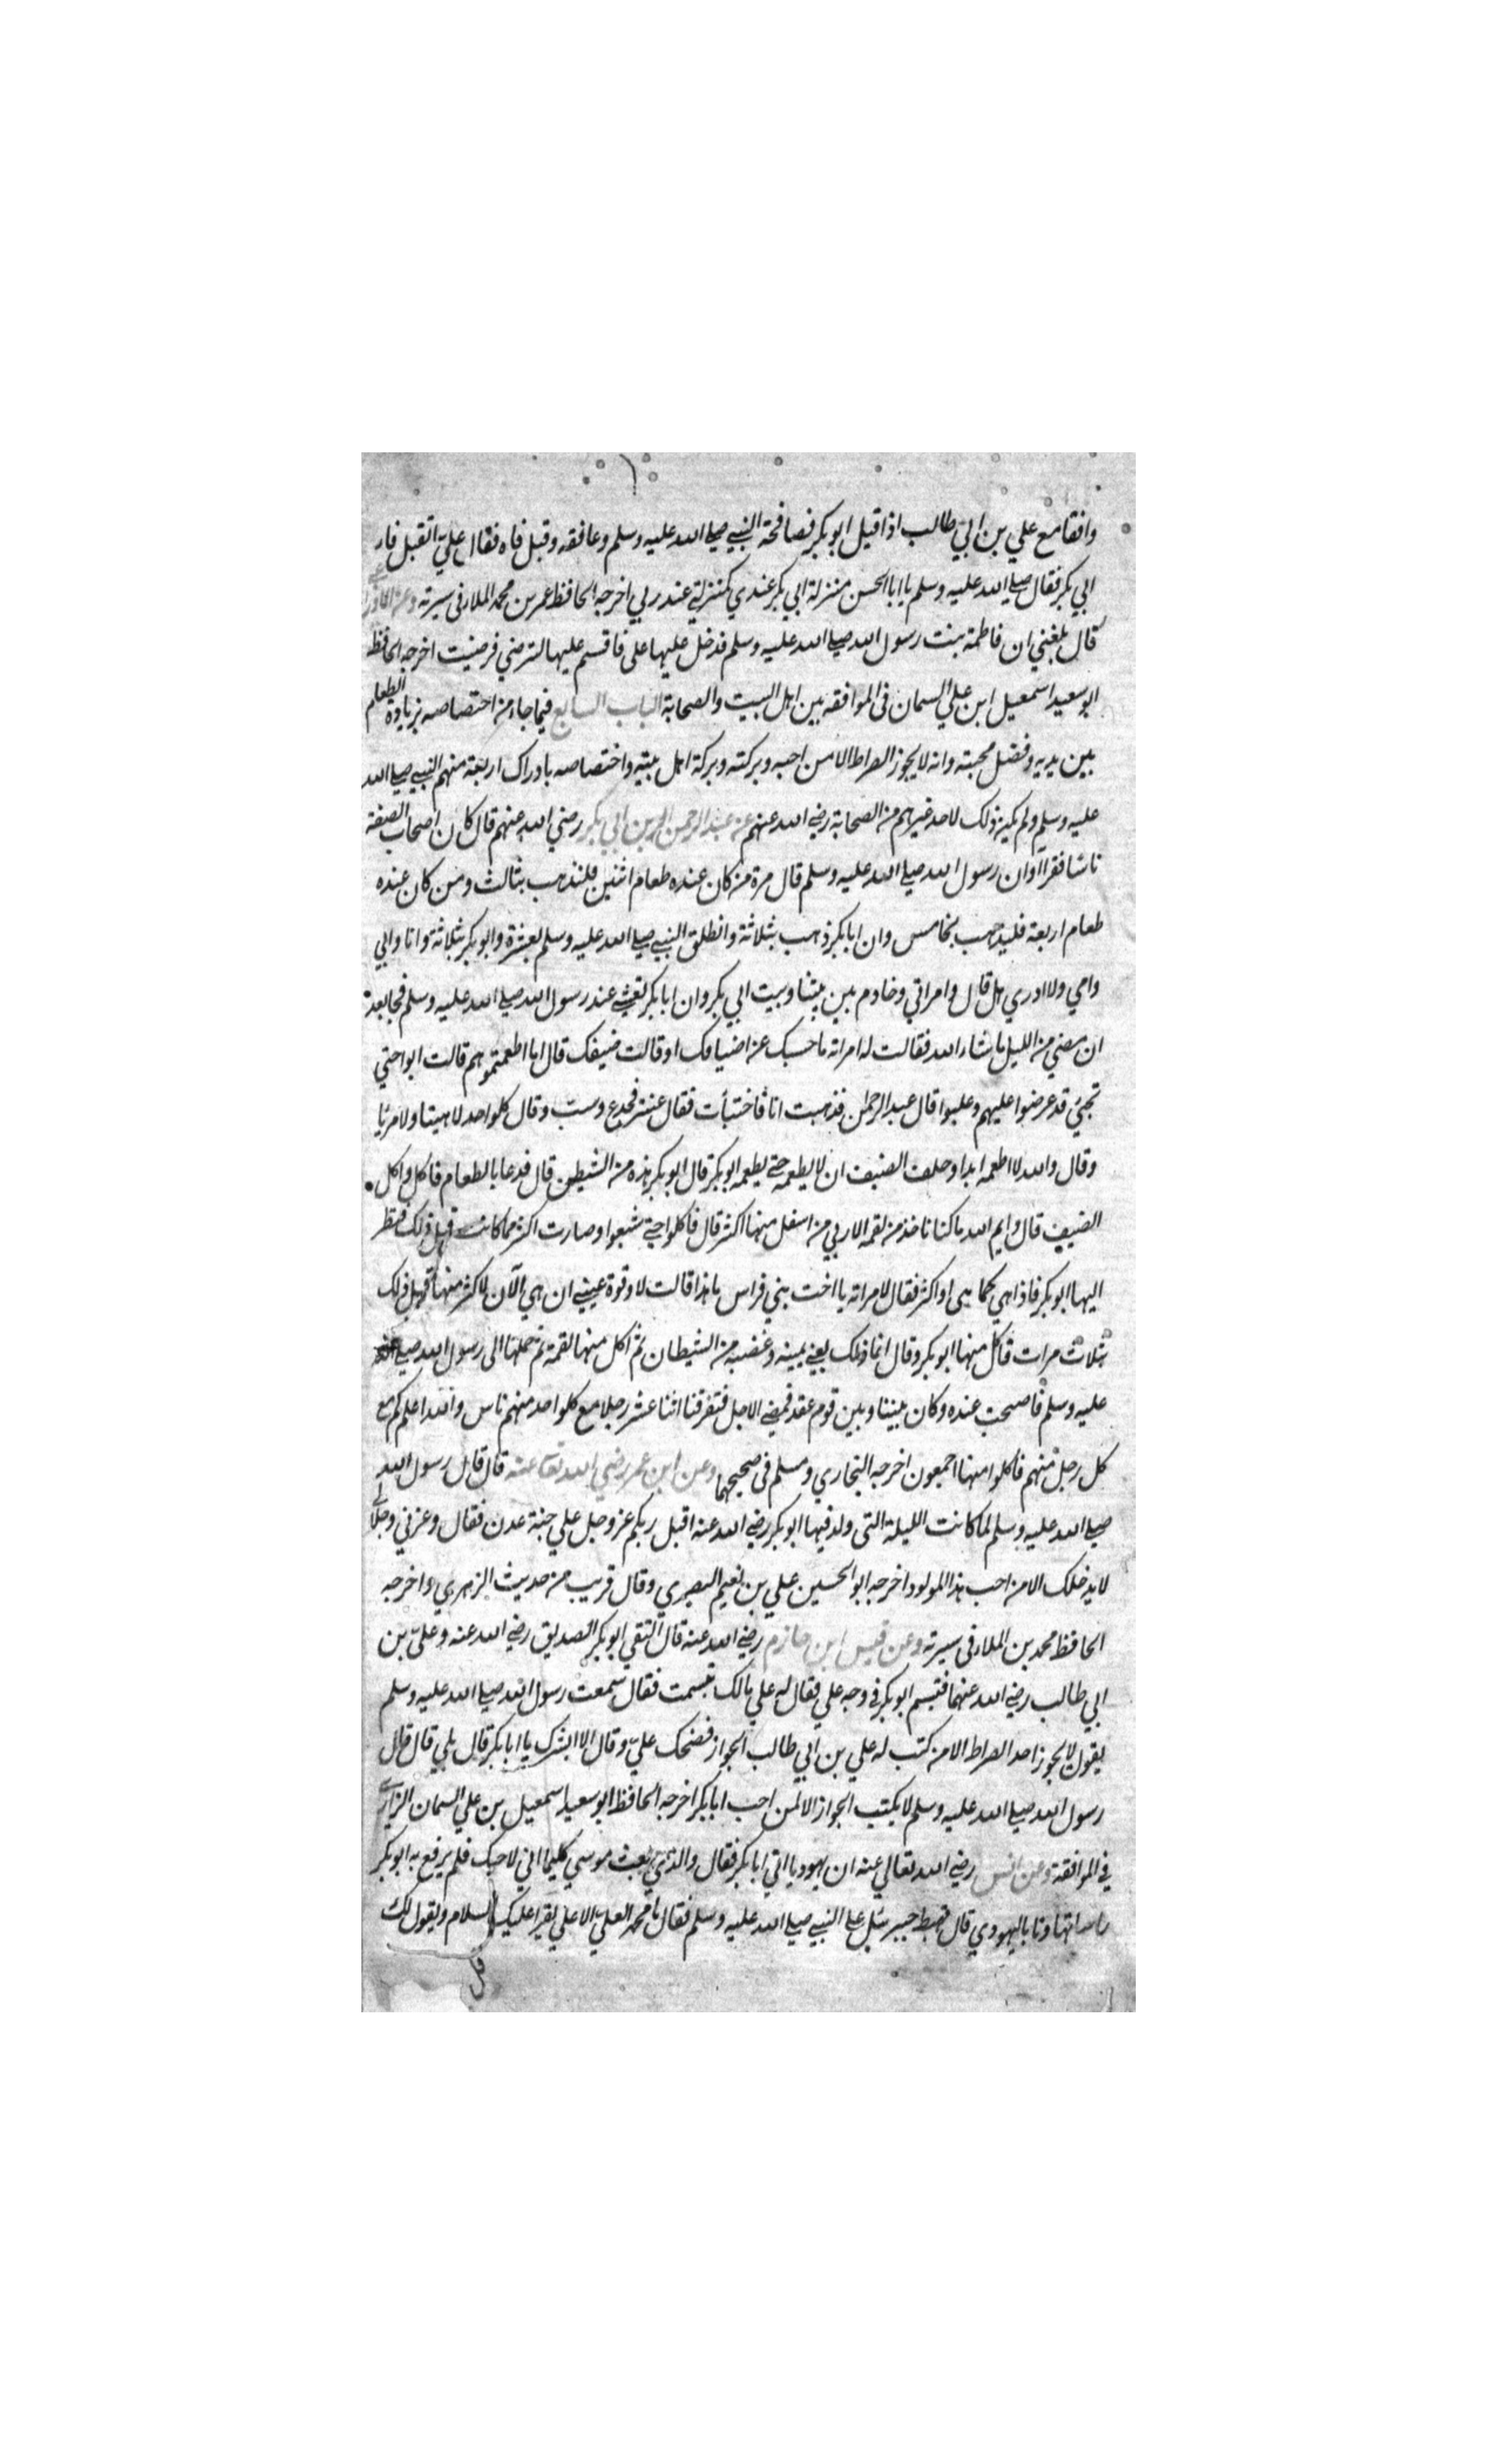 واقفا مع علي بن ابي طالب اذا قبل ابو بكر فصافحة النبي صلي الله عليه وسلم وعانقه وقبل فاه فقال علي اتقبل فاء
ابي بكر فقال صلي الله عليه وسلم يا ابا الحسن منزلة ابي بكر عندي كمنزلتي عند ربي اخرجه الحافظ عمر بن محمد الملا في سيرته وعن
قال بلغني ان فاطمة بنت رسول الله صلي الله عليه وسلم فدخل عليها علي فاقسم عليها لترضي فرضيت اخرجه الحافظ
ابو سعيد اسمعيل ابن علي السمان في الموافقه بين اهل البيت والصحابة الباب السابع فيما جاء من اختصاصه بزيادة الطعام
بين يديه وفضل محبته وانه لا يجوز الصراط الا من احبه وبركته وبركة اهل بيته واختصاصه بادراك اربعة منهم النبي صلي الله
عليه وسلم ولم يكن ذلك لاحد غيرهم من الصحابة رضي الله عنهم عن عبد الرحمن بن ابي بكر رضي الله عنهم قال كان اصحاب الصفة
ناسا فقراا وان رسول الله صلي الله عليه وسلم قال مرة من كان عنده طعام اثنين فليذهب بثالث ومن كان عنده
طعام اربعة فليذهب بخامس وان ابا بكر ذهب بثلاثة وانطلق النبي صلي الله عليه وسلم بعشرة وابو بكر بثلاثة وانا وابي
وامي ولا ادري هل قال وامراتي وخادم بين بيتنا وبيت ابي بكر وان ابا بكر تعشي عند رسول الله صلي الله عليه وسلم فجا بعد
ان مضي من الليل ما شاء الله فقالت له امراته ما حبسك عن اضيافك او قالت ضيفك قال اما اطعمتموهم قالت ابوا حتي
تجئ قد عرضوا عليهم وغلبوا قال عبد الرحمن فذهبت انا فاختبأت فقال عنتر فجدع وسب وقال كلوا لا هنيئا ولا مريا
وقال والله لا اطعمه ابدا وحلف الضيف ان لا يطعمه حتي يطعمه ابو بكر قال ابو بكر هذه من الشيطن قال فدعا بالطعام فاكل واكل
الضيف قال وايم الله ما كنا ناخذ من لقمة الا ربي من اسفل منها اكثر قال فاكلوا حتي شبعوا وصارت اكثر مما كانت قبل ذلك فنظر
اليها ابو بكر فاذا هي كما هي او اكثر فقال لامراته يا اخت بني فراس ما هذا قالت لا وقوة عيني ان هي الآن لاكثر منها قبل ذلك
بثلاث مرات فاكل منها ابو بكر وقال انما ذلك يعني يمينه وغضبه من الشيطان ثم اكل منها لقمة ثم حملها الي رسول الله صلي الله
عليه وسلم فاصبحت عنده وكان بيننا وبين قوم عقد فمضي الاجل فتفرقنا اثنا عشر رجلا مع كل واحد منهم ناس والله اعلم كم مع
كل رجل منهم فاكلوا منها اجمعون اخرجه البخاري ومسلم في صحيحهما وعن ابن عمر رضي الله تعالي عنه قال قال رسول الله
صلي الله عليه وسلم لما كانت الليلة التي ولد فيها ابو بكر رضي الله عنه اقبل ربكم عز وجل علي جنة عدن فقال وعزتي وجلالي
لا يدخلك الا من احب هذا المولود اخرجه ابو الحسين علي بن نعيم البصري وقال قريب من حديث الزهري واخرجه
الحافظ محمد بن الملا في سيرته وعن قيس ابن حازم رضي الله عنه قال التقي ابو بكر الصديق رضي الله عنه وعلي بن
ابي طالب رضي الله عنهما فتبسم ابو بكر في وجه علي فقال له علي مالك تبسمت فقال سمعت رسول الله صلي الله عليه وسلم
يقول لا يجوز احد الصراط الا من كتب له علي بن ابي طالب الجواز فضحك علي وقال الا ابشرك يا ابا بكر قال بلي قال قال
رسول الله صلي الله عليه وسلم لا يكتب الجواز الا لمن احب ابا بكر اخرجه الحافظ ابو سعيد اسمعيل بن علي السمان الرازي
في الموافقة وعن انس رضي الله تعالي عنه ان يهوديا اتي ابا بكر فقال والذي بعث موسي كليما اني لاحبك فلم يرفع به ابو بكر
راسا تهاونا باليهودي قال فهبط جبريل علي النبي صلي الله عليه وسلم فقال يا محمد العلي الاعلي يقرا عليك السلام ويقول لك
قل